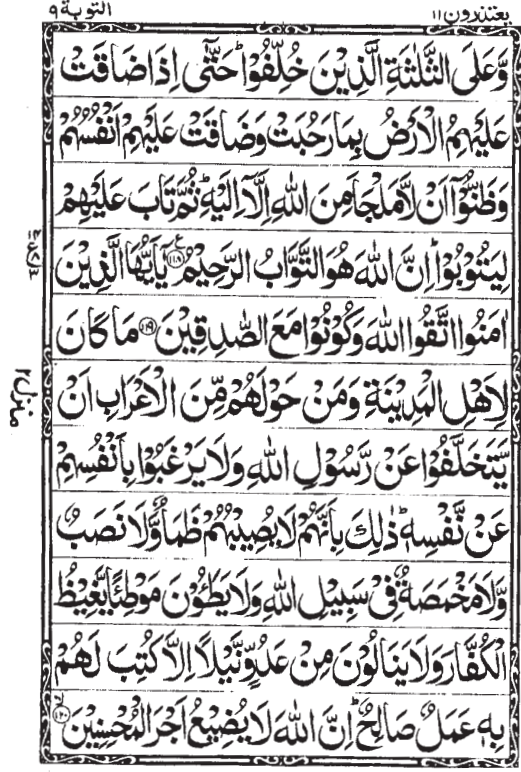 يعتذرون ١١
التوبة ٩
وَّعَلَى الثَّلٰثَةِ الَّذِيْنَ خُلِّفُوْا ؕ حَتّٰۤى اِذَا ضَاقَتْ
عَلَيْهِمُ الْاَرْضُ بِمَا رَحُبَتْ وَضَاقَتْ عَلَيْهِمْ اَنْفُسُهُمْ
وَظَنُّوْۤا اَنْ لَّا مَلْجَاَ مِنَ اللّٰهِ اِلَّاۤ اِلَيْهِ ؕ ثُمَّ تَابَ عَلَيْهِمْ
لِيَتُوْبُوْا ؕ اِنَّ اللّٰهَ هُوَ التَّوَّابُ الرَّحِيْمُ ۧ‏﴿۱۱۸﴾‏ يٰۤاَيُّهَا الَّذِيْنَ
اٰمَنُوا اتَّقُوا اللّٰهَ وَكُوْنُوْا مَعَ الصّٰدِقِيْنَ ﴿۱۱۹﴾ مَا كَانَ
لِاَهْلِ الْمَدِيْنَةِ وَمَنْ حَوْلَهُمْ مِّنَ الْاَعْرَابِ اَنْ
يَّتَخَلَّفُوْا عَنْ رَّسُوْلِ اللّٰهِ وَلَا يَرْغَبُوْا بِاَنْفُسِهِمْ
عَنْ نَّفْسِهٖ ؕ ذٰلِكَ بِاَنَّهُمْ لَا يُصِيْبُهُمْ ظَمَاٌ وَّلَا نَصَبٌ
وَّلَا مَخْمَصَةٌ فِيْ سَبِيْلِ اللّٰهِ وَلَا يَطَـُٔوْنَ مَوْطِئًا يَّغِيْظُ
الْكُفَّارَ وَلَا يَنَالُوْنَ مِنْ عَدُوٍّ نَّيْلًا اِلَّا كُتِبَ لَهُمْ
بِهٖ عَمَلٌ صَالِحٌ ؕ اِنَّ اللّٰهَ لَا يُضِيْعُ اَجْرَ الْمُحْسِنِيْنَ ۙ‏﴿۱۲۰﴾
منزل ٢